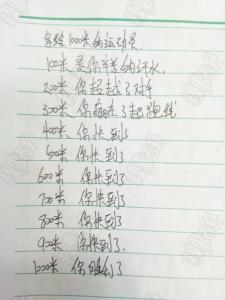 给1000米的运动员
100米 是你辛苦的汗水,
200米 你超越了对手
300米 你跑过了起跑线
400米 你快到了
500米 你快到了
600米 你快到了
700米 你快到了
800米 你快到了
900米 你快到了.
1000米 你到了